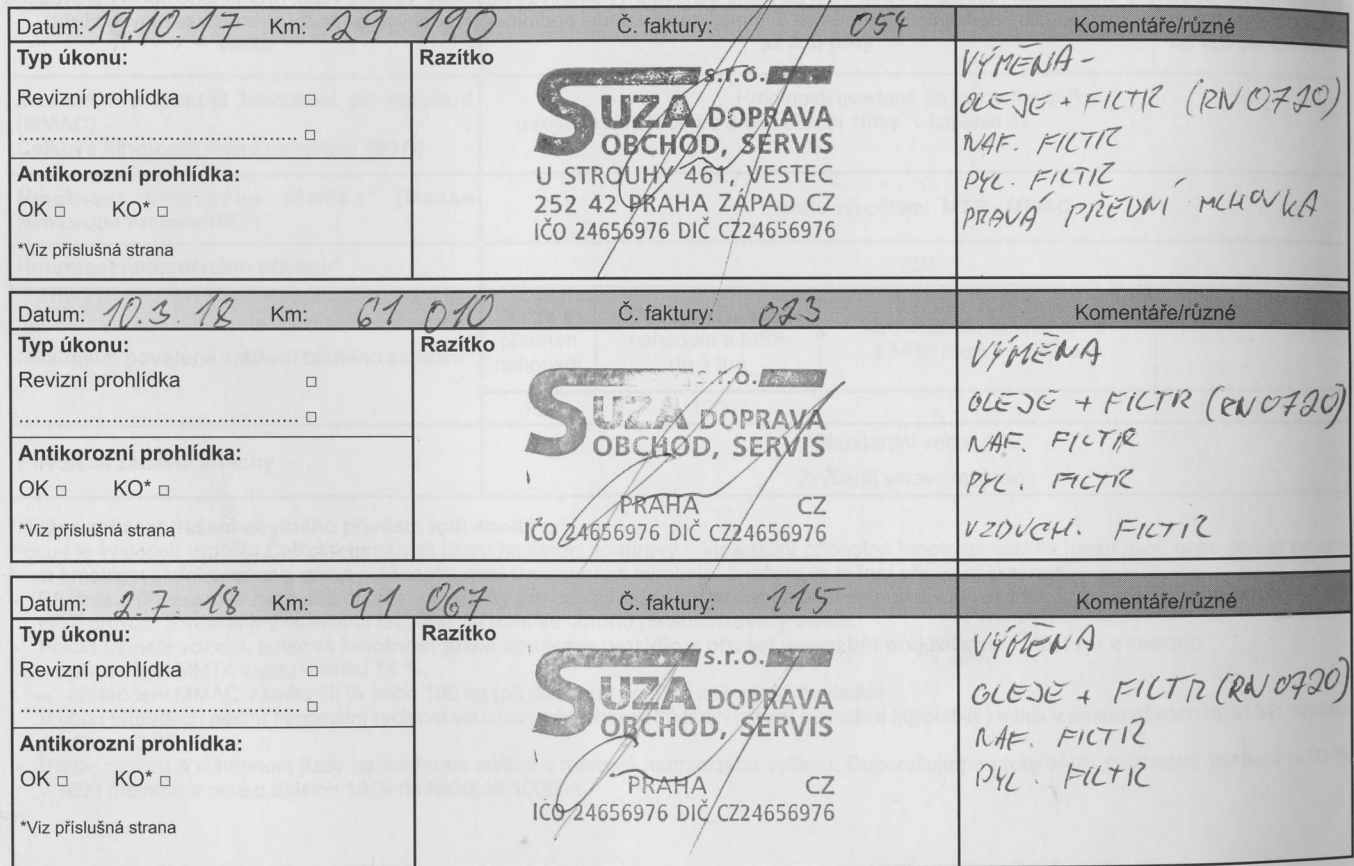 Datum: 19.10.17 Km: 29 190 Č. faktury: 054 Komentáře/různé
Typ úkonu:
Revizní prohlídka □
□
Antikorozní prohlídka:
OK □ KO* □
*Viz příslušná strana
Razítko
S.r.o.
SUZA DOPRAVA
OBCHOD, SERVIS
U STROUHY 461, VESTEC
252 42 PRAHA ZÁPAD CZ
IČO 24656976 DIČ CZ24656976
VÝMĚNA -
OLEJE + FILTR (RN 0720)
NAF. FILTR
PYL. FILTR
PRAVÁ PŘEDNÍ MLHOVKA
Datum: 10.3.18 Km: 61 010 Č. faktury: 023 Komentáře/různé
Typ úkonu:
Revizní prohlídka □
□
Antikorozní prohlídka:
OK □ KO* □
*Viz příslušná strana
Razítko
s.r.o.
SUZA DOPRAVA
OBCHOD, SERVIS
PRAHA CZ
IČO 24656976 DIČ CZ24656976
VÝMĚNA
OLEJE + FILTR (RN 0720)
NAF. FILTR
PYL. FILTR
VZDUCH. FILTR
Datum: 2.7.18 Km: 91 067 Č. faktury: 115 Komentáře/různé
Typ úkonu:
Revizní prohlídka □
□
Antikorozní prohlídka:
OK □ KO* □
*Viz příslušná strana
Razítko
s.r.o.
SUZA DOPRAVA
OBCHOD, SERVIS
PRAHA CZ
IČO 24656976 DIČ CZ24656976
VÝMĚNA
OLEJE + FILTR (RN 0720)
NAF. FILTR
PYL. FILTR